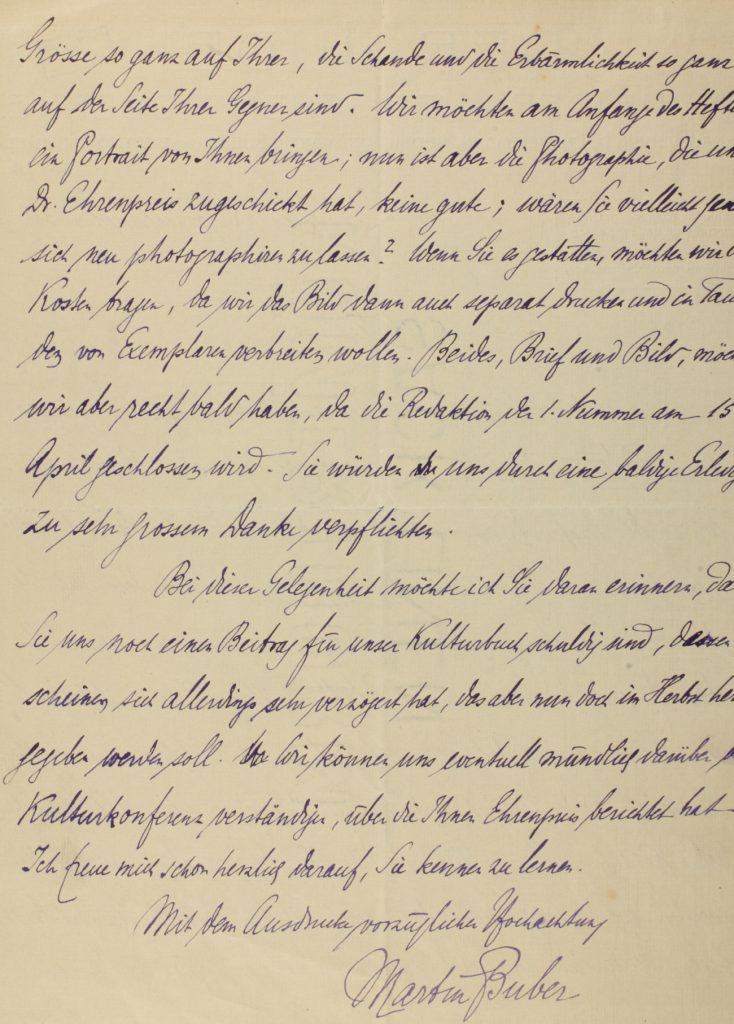 Grösse so ganz auf Ihrer, die Schande und die Erbärmlichkeit so ganz
auf der Seite Ihrer Gegner sind. Wir möchten am Anfange des Hefte
ein Portrait von Ihnen bringen; nun ist aber die Photographie, die un
Dr. Ehrenpreis zugeschickt hat, keine gute; wären Sie vielleicht gen
sich neu photographiren zu lassen? Wenn Sie es gestatten, möchten wir
Kosten tragen, da wir das Bild dann auch separat drucken und in Tau
den von Exemplaren verbreiten wollen. Beides, Brief und Bild, möch
wir aber recht bald haben, da die Redaktion der 1. Nummer am 15
April geschlossen wird. Sie würden uns durch eine baldige Erledig
zu sehr grossem Danke verpflichten.
Bei dieser Gelegenheit möchte ich Sie daran erinnern, da
Sie uns noch einen Beitrag für unser Kulturbuch schuldig sind, dessen
scheinen sich allerdings sehr verzögert hat, das aber nun doch im Herbst her
gegeben werden soll. Wir können uns eventuell mündlich darüber
Kulturkonferenz verständigen, über die Ihnen Ehrenpreis berichtet hat
Ich freue mich schon herzlich darauf, Sie kennen zu lernen.
Mit dem Ausdrucke vorzüglicher Hochachtung
Martin Buber